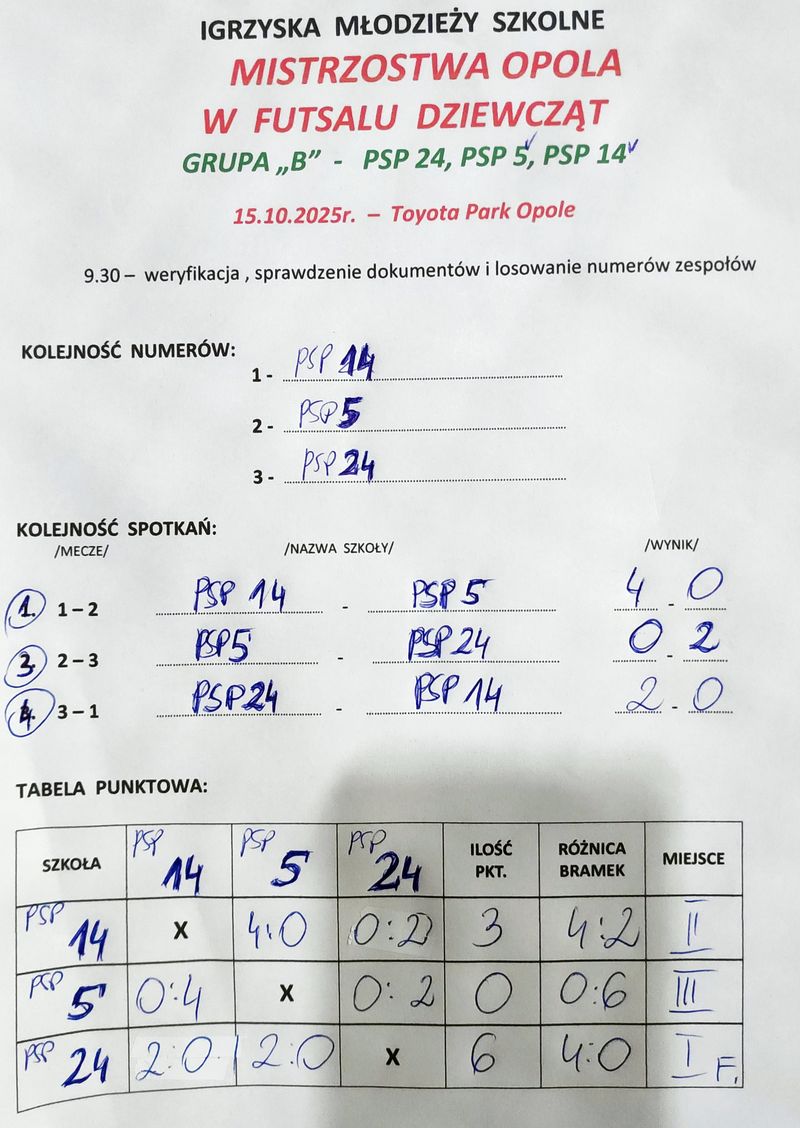 IGRZYSKA MŁODZIEŻY SZKOLNE
MISTRZOSTWA OPOLA
W FUTSALU DZIEWCZĄT
GRUPA „B” - PSP 24, PSP 5, PSP 14
15.10.2025r. – Toyota Park Opole
9.30 – weryfikacja , sprawdzenie dokumentów i losowanie numerów zespołów
KOLEJNOŚĆ NUMERÓW:
1 - PSP 14
2 - PSP 5
3 - PSP 24
KOLEJNOŚĆ SPOTKAŃ:
/MECZE/ /NAZWA SZKOŁY/ /WYNIK/
1. 1 – 2 PSP 14 - PSP 5 4 - 0
3. 2 – 3 PSP 5 - PSP 24 0 - 2
3 – 1 PSP 24 - PSP 14 2 - 0
TABELA PUNKTOWA:
SZKOŁA PSP 14 PSP 5 PSP 24 ILOŚĆ PKT. RÓŻNICA BRAMEK MIEJSCE
PSP 14 X 4:0 0:2 3 4:2 II
PSP 5 0:4 X 0:2 0 0:6 III
PSP 24 2:0 2:0 X 6 4:0 I F.